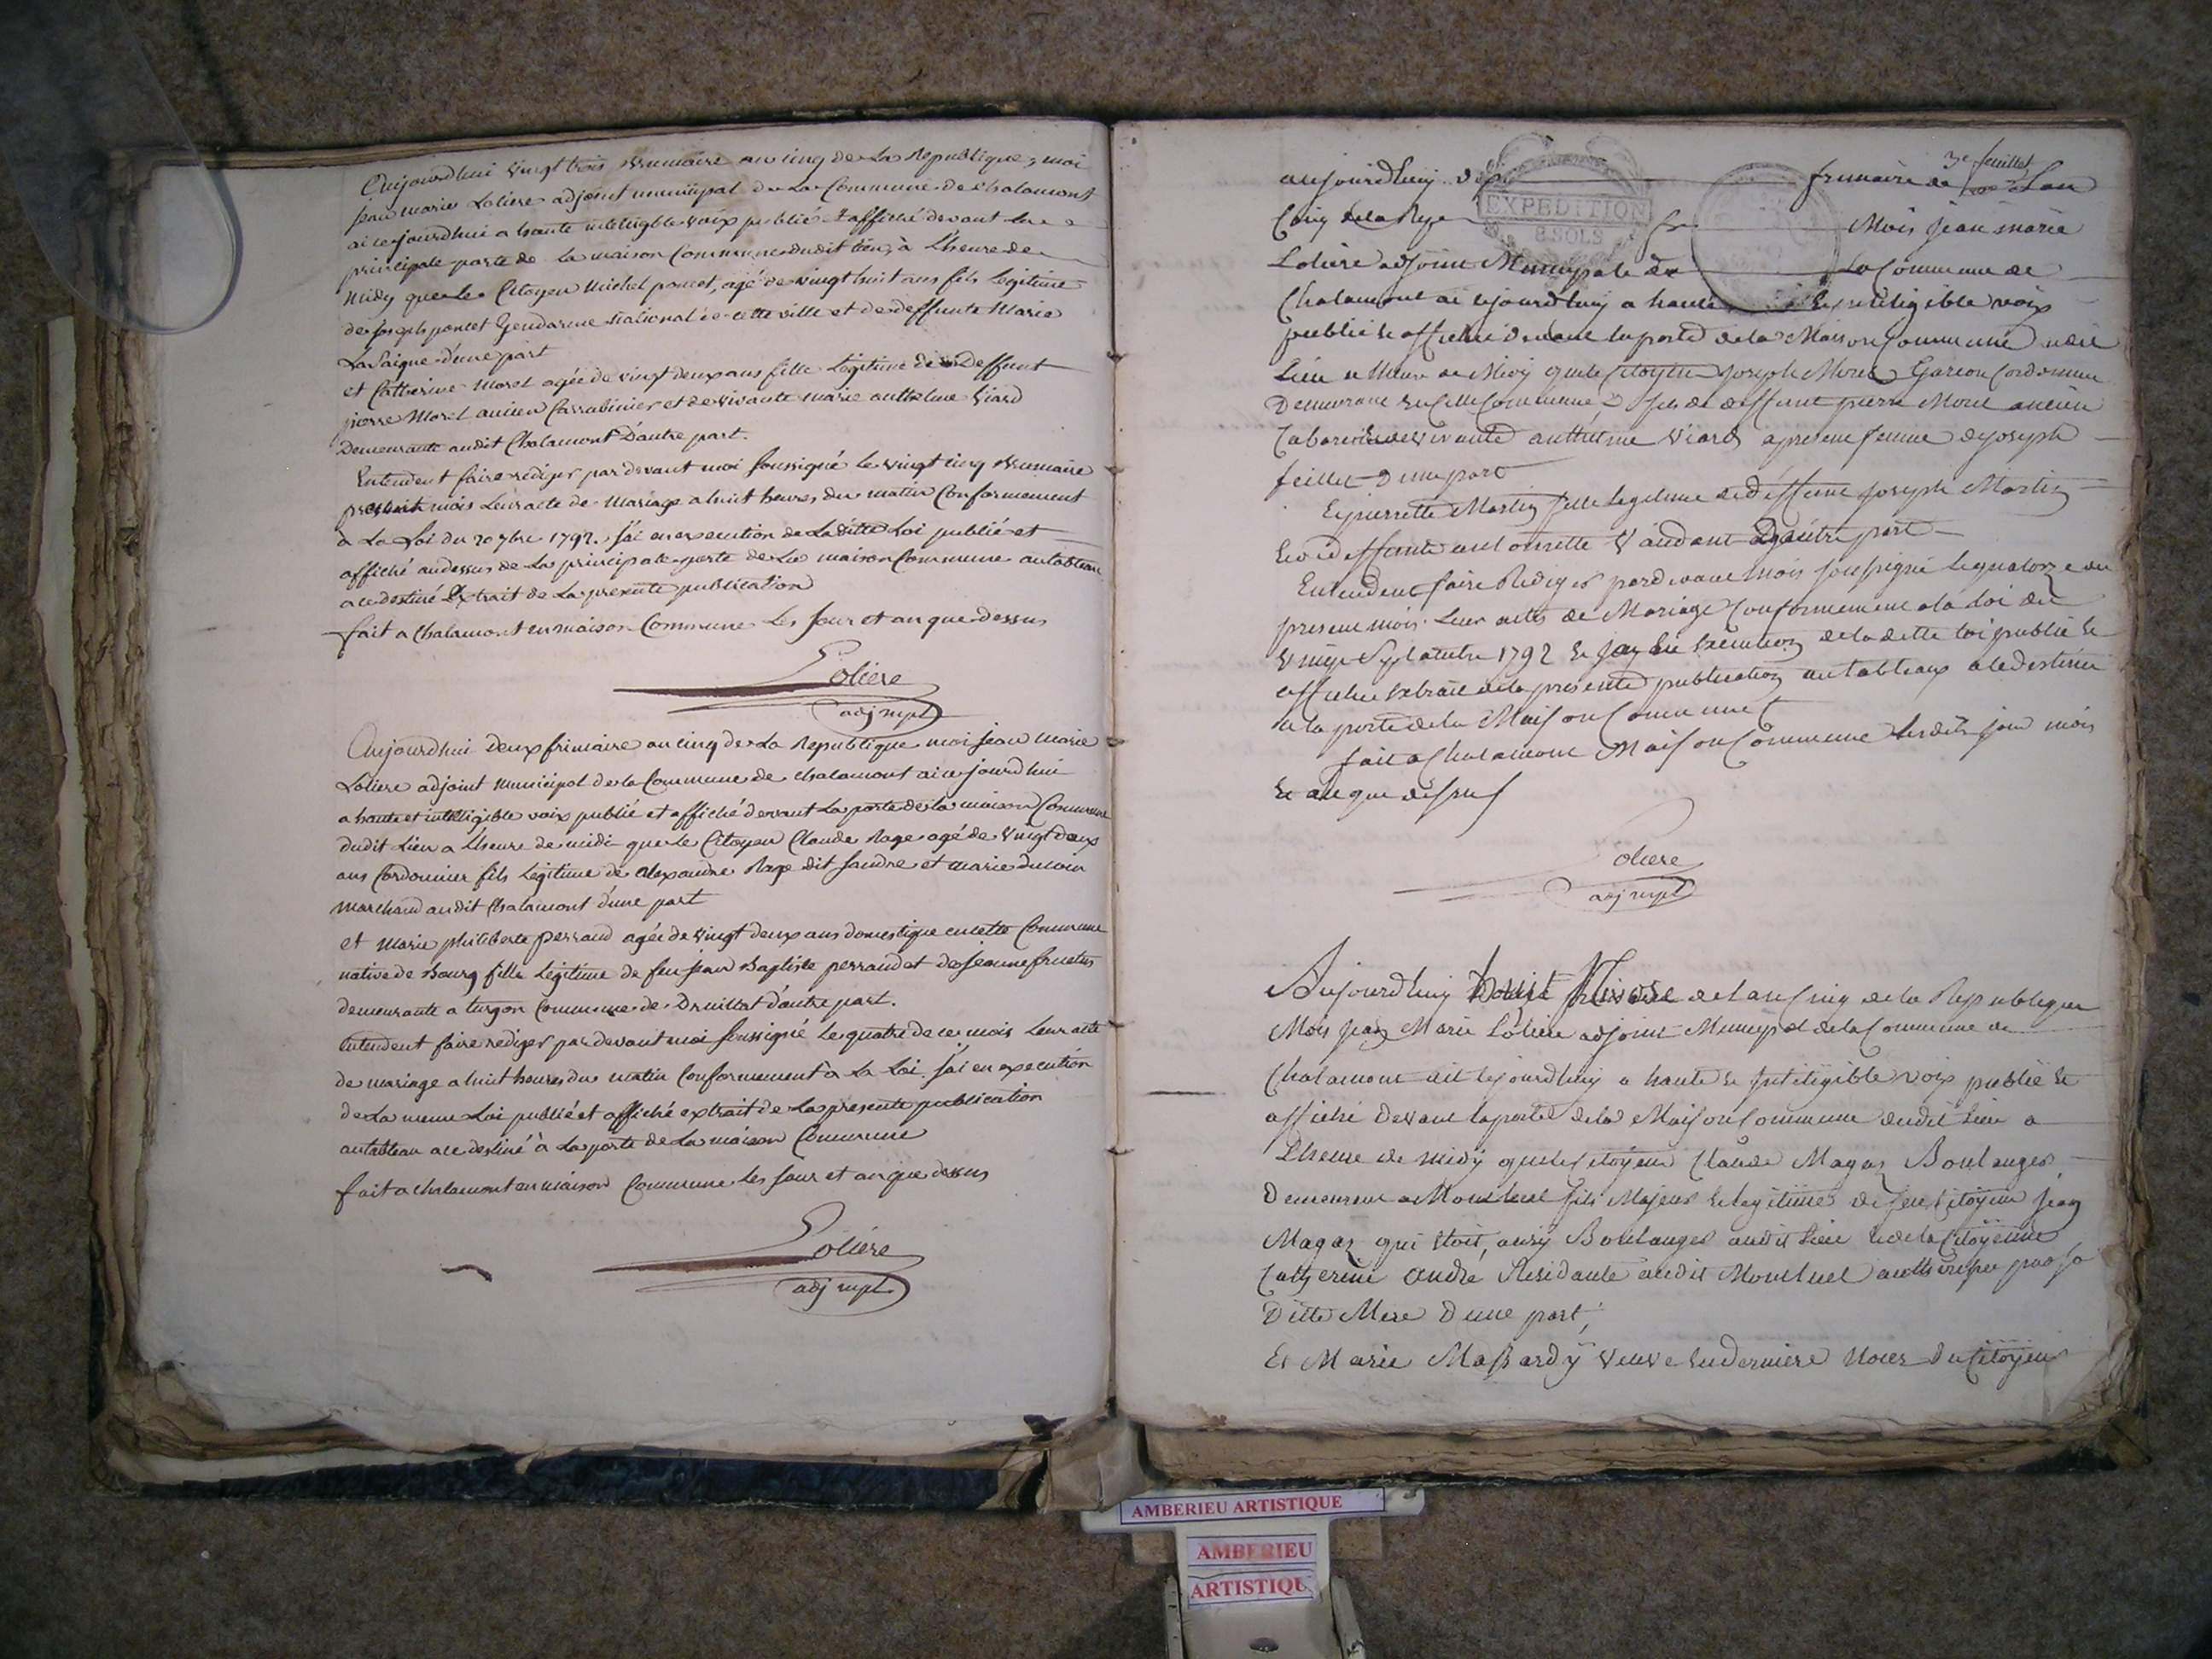 Aujourdhui vingt trois Brumaire an cinq de La Republique, moi
jean marie Loliere adjoint municipal de La Commune de chalamont
ai cejourdhui a haute inteligible voix publié & affiché devant la
principale porte de la maison Commune dudit lieu, à L'heure de
Midy que le Citoyen Michel poncet, agé de vingt huit ans fils legitime
de joseph poncet Gendarme National de cette ville et de deffunte Marie
d'une part
et Catherine Morel agée de vingt deux ans fille Legitime de Deffunt
pierre Morel ancien et de vivante marie anthelme Viard
Demeurante audit Chalamont D'autre part.
Entendent faire rediger par devant moi soussigné le vingt cinq Brumaire
present mois Leur acte de Mariage a huit heures du matin Conformement
à La Loi du 20 7bre 1792. j'ai en execution de La ditte Loi publié et
affiché au dessus de La principale porte de La maison Commune au tableau
a ce destiné Extrait de La presente publication
fait a Chalamont en maison Commune Les Jour et an que dessus
Loliere
adj mpl
Aujourdhui deux frimaire an cinq de La Republique moi jean Marie
Loliere adjoint Municipal de la Commune de chalamont ai ce jourdhui
a haute et intelligible voix publié et affiché devant La porte de la maison Commune
dudit Lieu a L'heure de midi que Le Citoyen Claude Rage agé de Vingt deux
ans Cordonnier fils Legitime de Alexandre Rage dit Sandre et marie
marchand audit Chalamont d'une part
et Marie philiberte perraud agée de vingt deux ans domestique en cette Commune
native de Bourg fille Legitime de feu jean Baptiste perraud et de Jeanne
demeurante a turgon Commune de Druillat d'autre part.
Entendent faire rediger par devant moi soussigné Le quatre de ce mois Leur acte
de mariage a huit heures du matin Conformement à La Loi. j'ai en execution
de La meme Loi publié et affiché extrait de La presente publication
au tableau a ce destiné à La porte de La maison Commune
fait a chalamont en maison Commune Les Jour et an que dessus
Loliere
adj mpl
3e feuillet
aujourdhuy frimaire de Lan
Cinq de la Rep Mois jean marie
EXPEDITION
8 SOLS
Loliere adjoint Municipale de La Commune de
Chalamont ai cejourdhuy a haute & inteligible voix
publié & affiché devant la porte de la Maison Commune dudit
Lieu a l'heure de Midy que le Citoyen Joseph Morel Garcon Cordonnier
Demeurant en cette Commune, fils de deffunt pierre Morel ancien
vivante anthelme Viard a present femme de joseph
feillet D'une part
Et pierrette Martin fille legitime de deffunt joseph Martin
& de deffunte D'autre part
Entendent faire Rediger pardevant Mois soussigné le quatorze du
present mois leur acte de Mariage Conformement a la Loi du
Vingt Septembre 1792 & jay en Execution de la dette loi publié &
affiché Extrait de la presente publication au tableaux a ce destiné
a la porte de la Maison Commune
fait a Chalamont Maison Commune les dits jour mois
& an que dessus
Loliere
adj mpl
Aujourdhuy huit Nivose de Lan Cinq de la Republique
Mois Jean Marie Loliere adjoint Municipal de la Commune de
Chalamont ait cejourdhuy a haute & Inteligible voix publié &
affiché devant la porte de la Maison Commune dudit Lieu a
L'heure de Midy que le Citoyen Claude Magaz Boulanger
Demeurant a Montluel fils Majeur & legitime de feu Citoyen Jean
Magaz qui etoit, aussy Boulanger audit Lieu & de la Citoyenne
Catherine André Residante audit Montluel par sa
Ditte Mere D'une part;
Et Marie Massardÿ veuve En derniere Noces du Citoyen
AMBERIEU ARTISTIQUE
AMBERIEU
ARTISTIQU